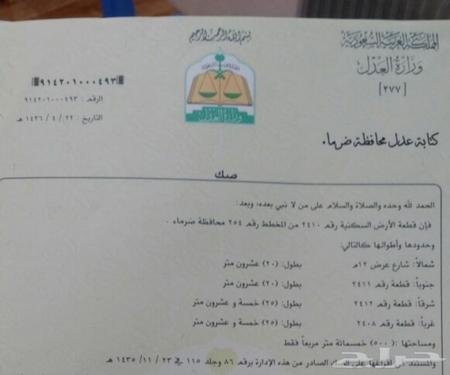 بسم الله الرحمن الرحيم
المملكة العربية السعودية
وزارة العدل
[٢٧٧]
كتابة عدل محافظة ضرماء
٩١٤٢٠١٠٠٠٤٩٣
الرقم : ٩١٤٢٠١٠٠٠٤٩٣
التاريخ : ٢٢ / ٤ / ١٤٣٦ هـ
وزارة العدل
صك
الحمد لله وحده والصلاة والسلام على من لا نبي بعده، وبعد:
فإن قطعة الأرض السكنية رقم ٢٤١٠ من المخطط رقم ٢٥٤ محافظة ضرماء .
وحدودها وأطوالها كالتالي:
شمالاً: شارع عرض ١٢م بطول: (٢٠) عشرون متر
جنوباً: قطعة رقم ٢٤١١ بطول: (٢٠) عشرون متر
شرقاً: قطعة رقم ٢٤١٢ بطول: (٢٥) خمسة و عشرون متر
غرباً: قطعة رقم ٢٤٠٨ بطول: (٢٥) خمسة و عشرون متر
ومساحتها : (٥٠٠) خمسمائة متر مربعاً فقط
والمستند في افراغها على الصك الصادر من هذه الإدارة برقم ٨٦ وجلد ١١٥ في ٢٣ / ١١ / ١٤٣٥ هـ
حراج